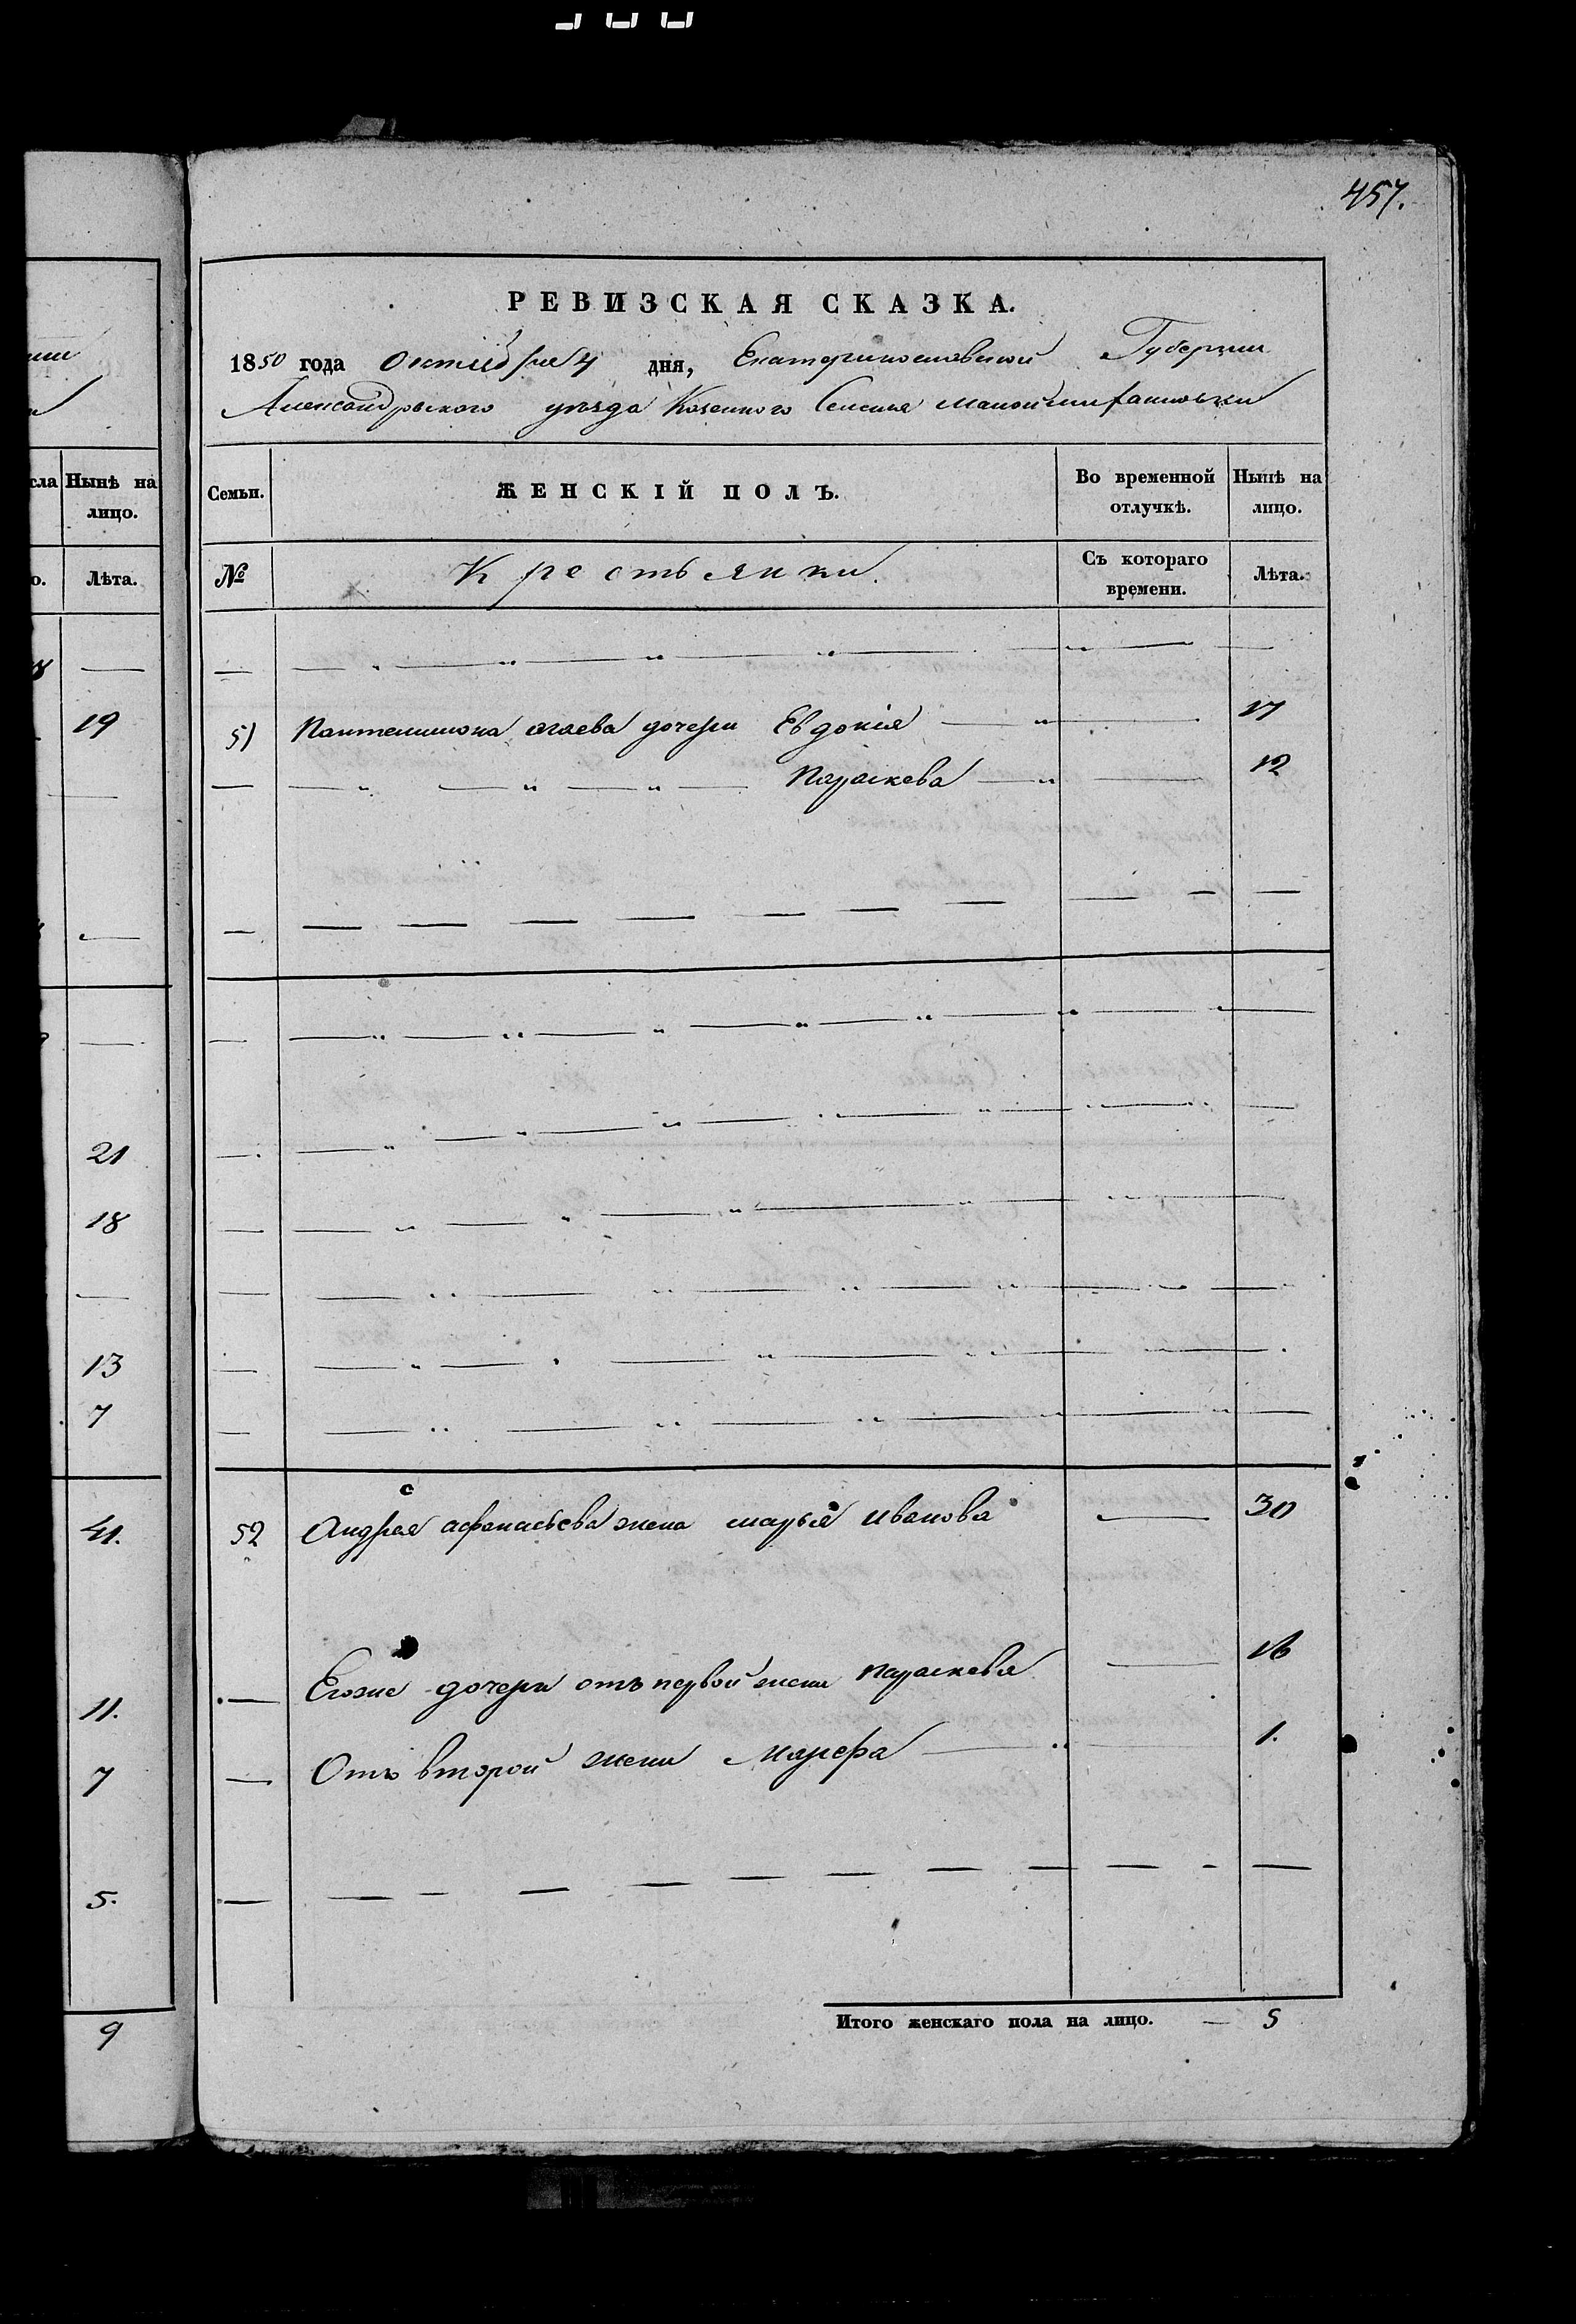 457.
РЕВИЗСКАЯ СКАЗКА.
1850 года Октября 4 дня, Екатеринославской Губернии
Александровского уезда Казенного Селения Малой
сла Нынѣ на лицо.
о. Лѣта.
Семьи. ЖЕНСКІЙ ПОЛЪ. Во временной отлучкѣ. Нынѣ на лицо.
№ Крестьянки. Съ котораго времени. Лѣта.
19
51 Пантелимона дочери Евдокия 17
Параскева 12
21
18
13
7
41.
52 Андрея афанасьева жена марья Иванова 30
11.
Егоже дочери отъ первой жени параскева 16
7
Отъ второй жени Марефа 1.
5.
9
Итого женскаго пола на лицо. 5